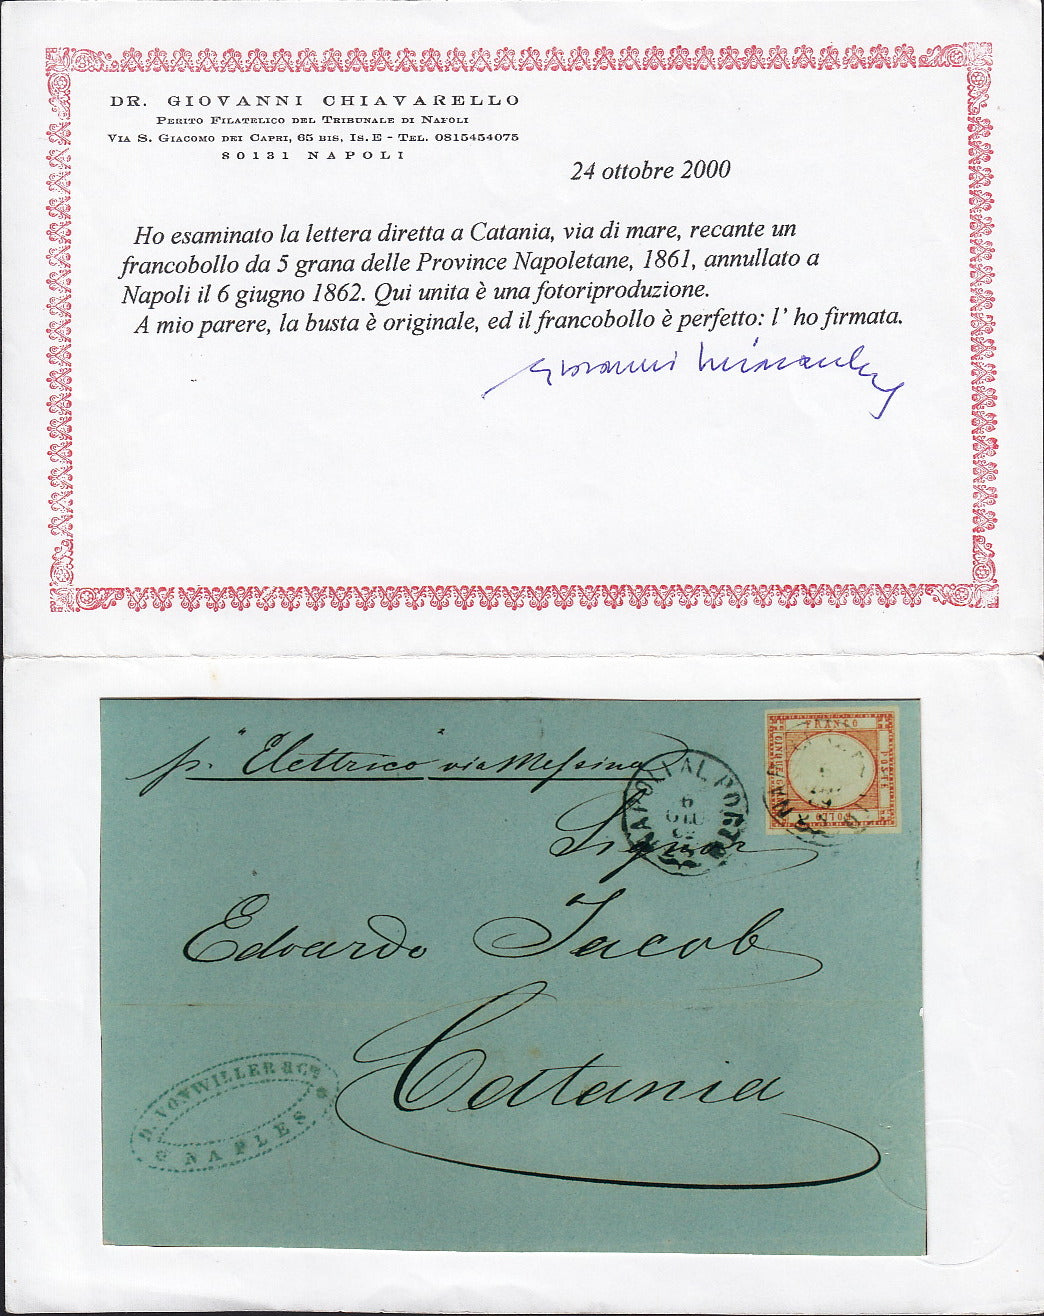 DR. GIOVANNI CHIAVARELLO
PERITO FILATELICO DEL TRIBUNALE DI NAPOLI
VIA S. GIACOMO DEI CAPRI, 65 BIS, IS. E - TEL. 0815454075
80131 NAPOLI
24 ottobre 2000
Ho esaminato la lettera diretta a Catania, via di mare, recante un
francobollo da 5 grana delle Province Napoletane, 1861, annullato a
Napoli il 6 giugno 1862. Qui unita è una fotoriproduzione.
A mio parere, la busta è originale, ed il francobollo è perfetto: l' ho firmata.
Giovanni Chiavarello
p. "Elettrico" via Messina
FRANCO
POSTE
CINQUE GRANA
BOLLO
NAPOLI AL PORTO
6
GIU
62
Signor
Edoardo Jacob
Catania
D. VONWILLER & Co.
NAPLES